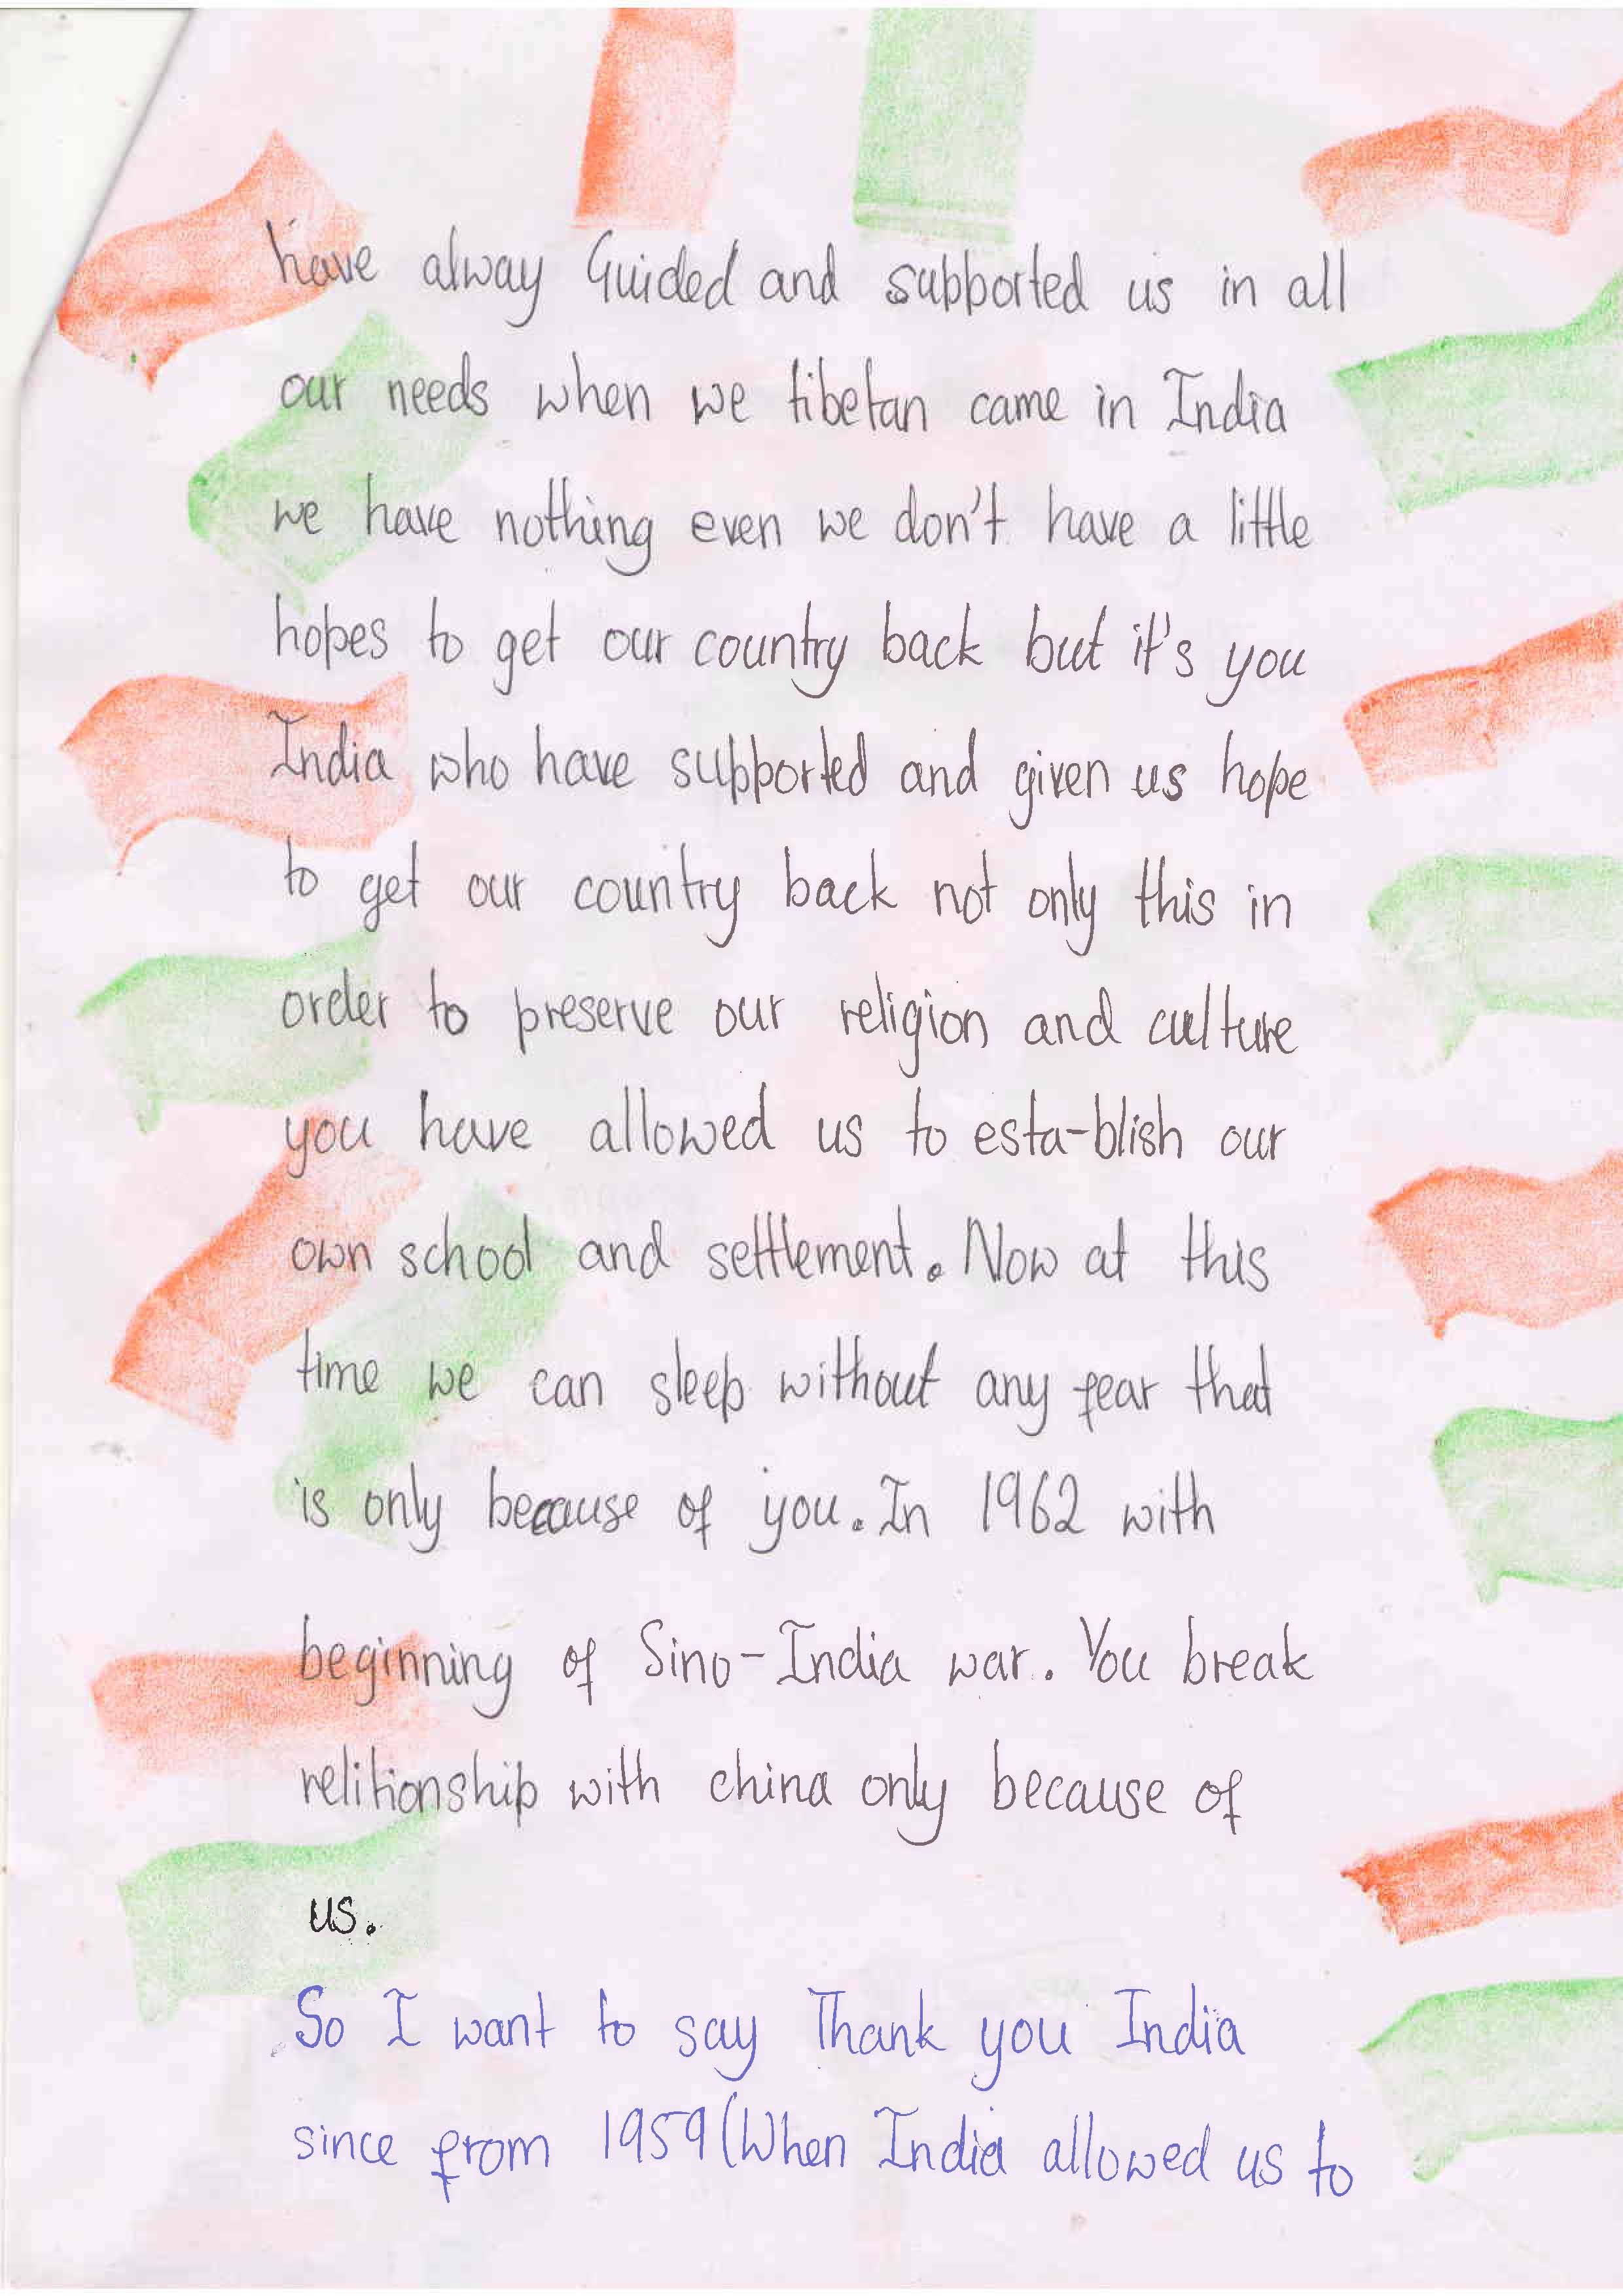 have alway Guided and supported us in all
our needs when we tibetan came in India
we have nothing even we don't have a little
hopes to get our country back but it's you
India who have supported and given us hope
to get our country back not only this in
order to preserve our religion and culture
you have allowed us to esta-blish our
own school and settlement. Now at this
time we can sleep without any fear that
is only because of you. In 1962 with
beginning of Sino-India war. You break
relitionship with china only because of
us.
So I want to say Thank you India
since from 1959 (When India allowed us to